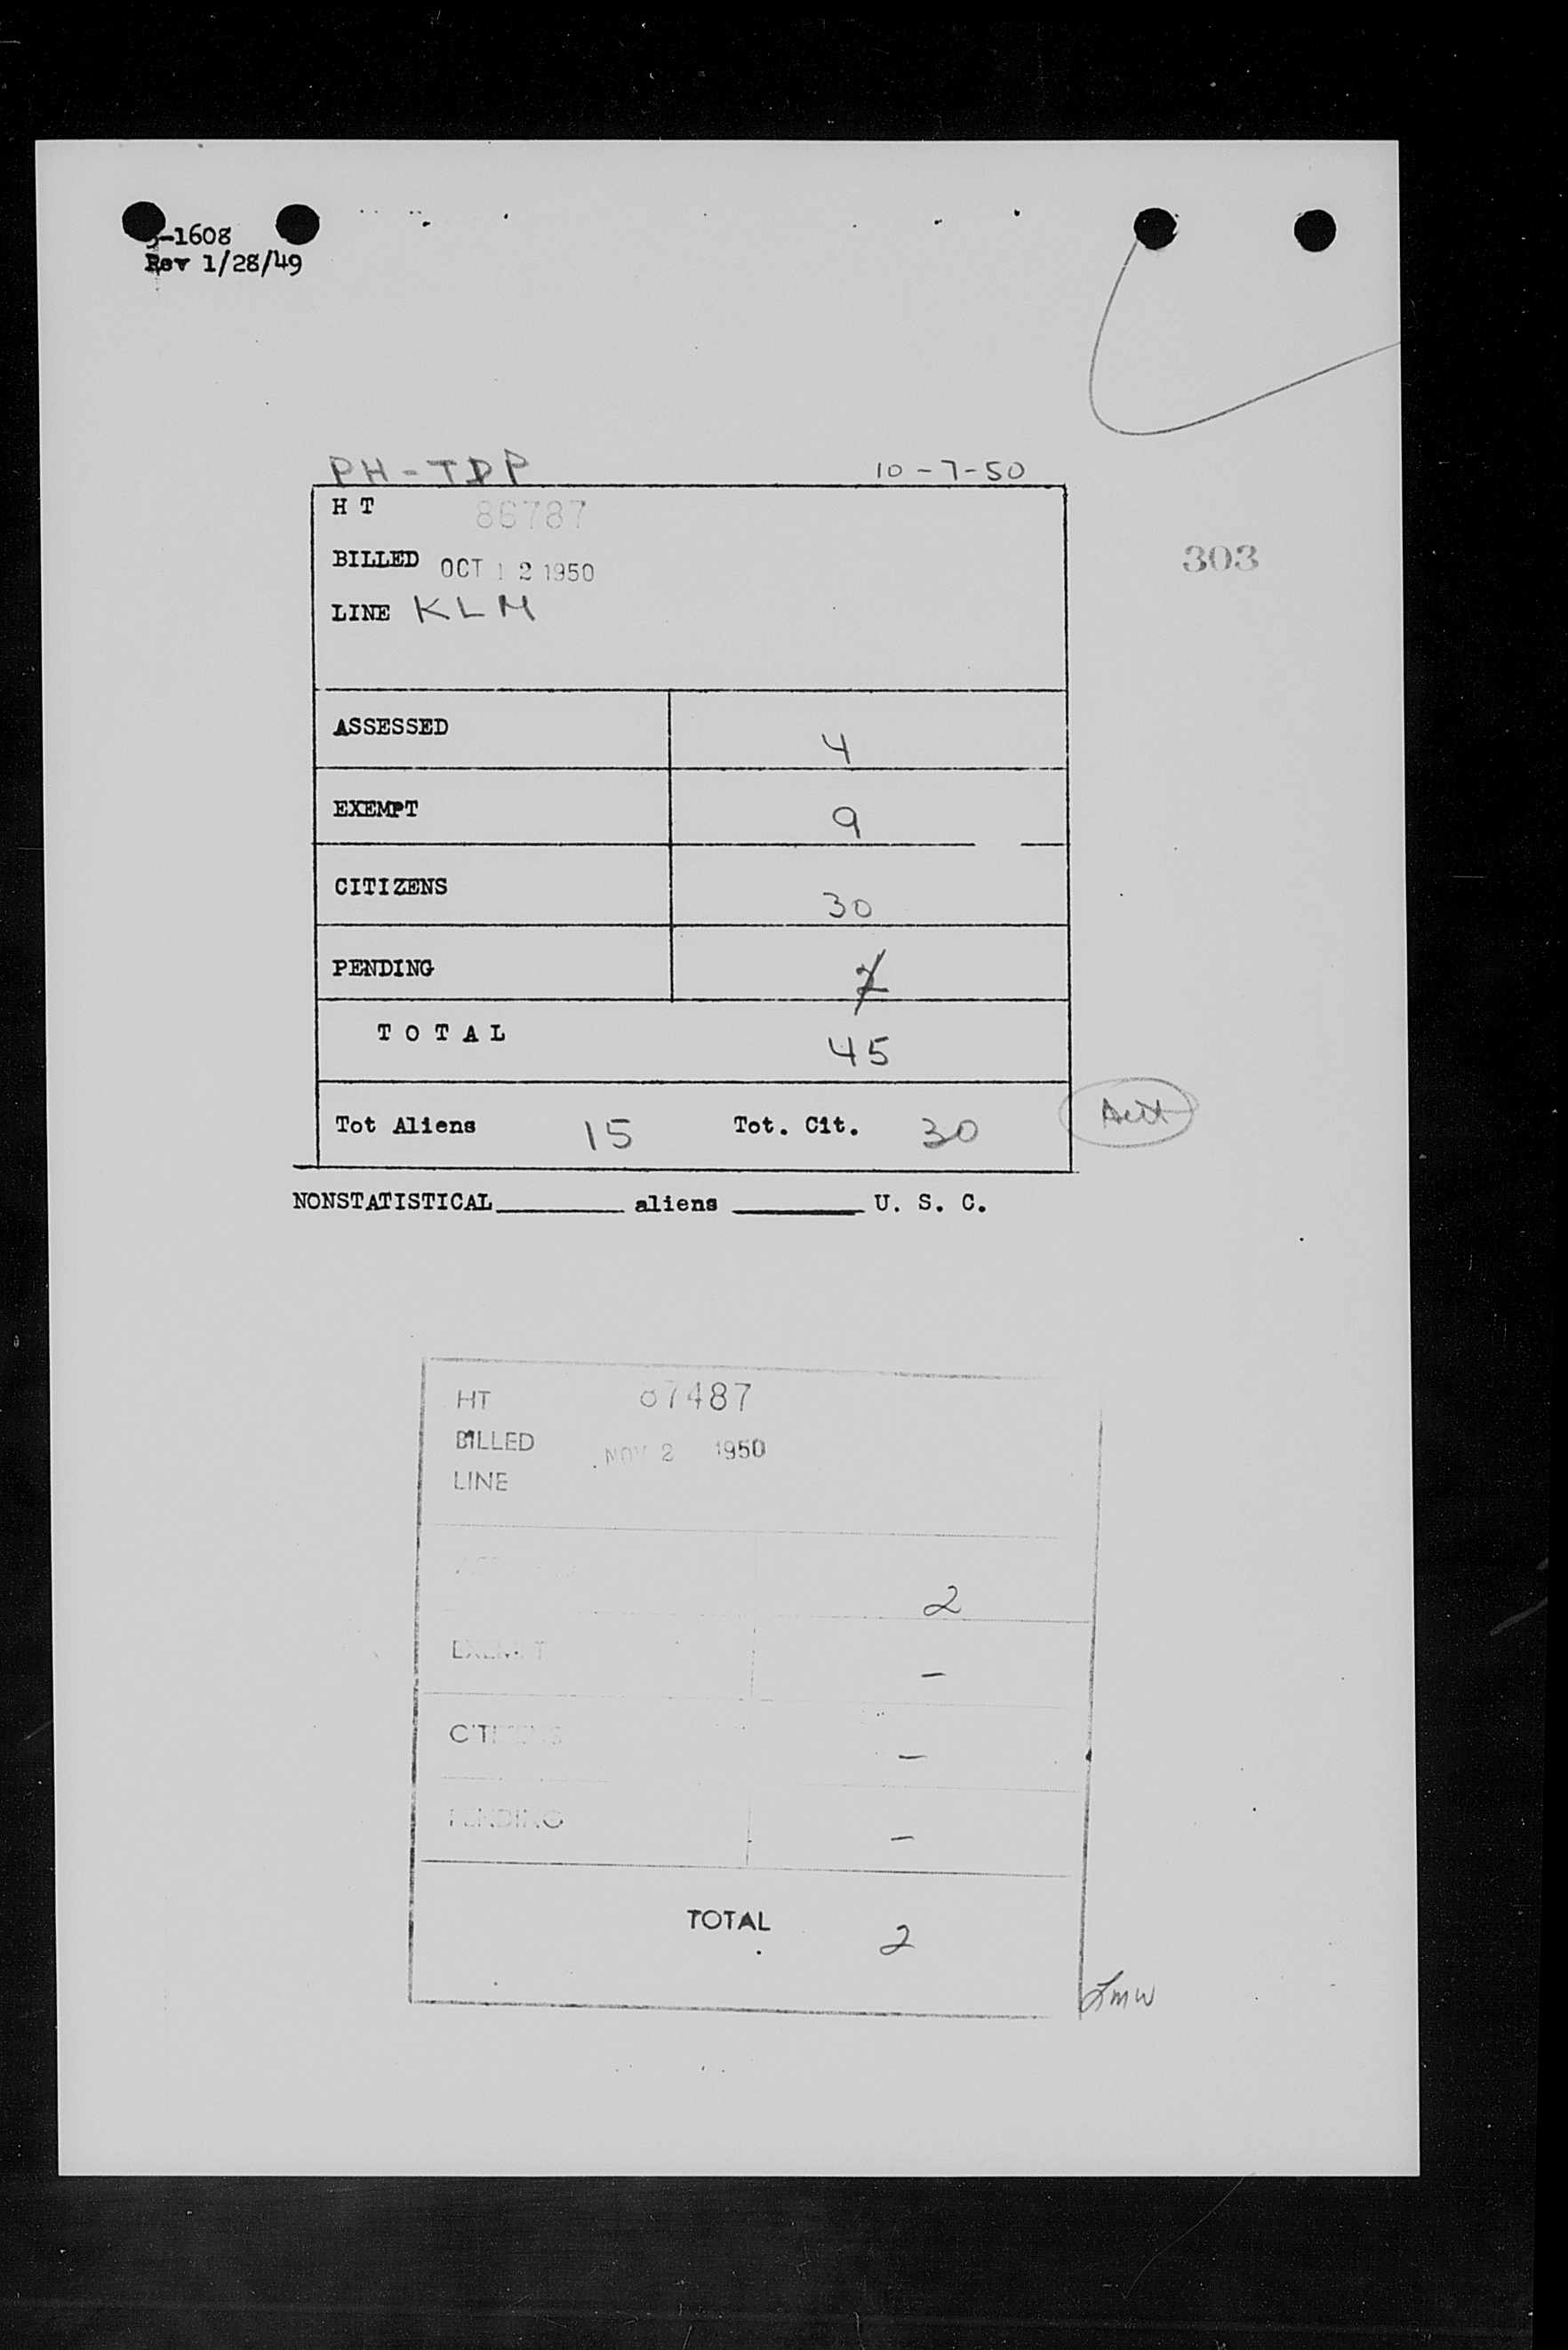 -1608
Rev 1/28/49
PH-TDP 10-7-50
H T 86787
303
BILLED OCT 12 1950
LINE KLM
ASSESSED 4
EXEMPT 9
CITIZENS 30
PENDING 2
T O T A L 45
Tot Aliens 15 Tot. Cit. 30
NONSTATISTICAL aliens U. S. C.
HT 87487
BILLED NOV 2 1950
LINE
2
EXEMPT -
CITIZENS -
PENDING -
TOTAL 2
Lmw